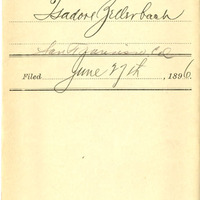 Isadore Zellerbach
San Francisco, Cal
Filed June 27th, 1896.